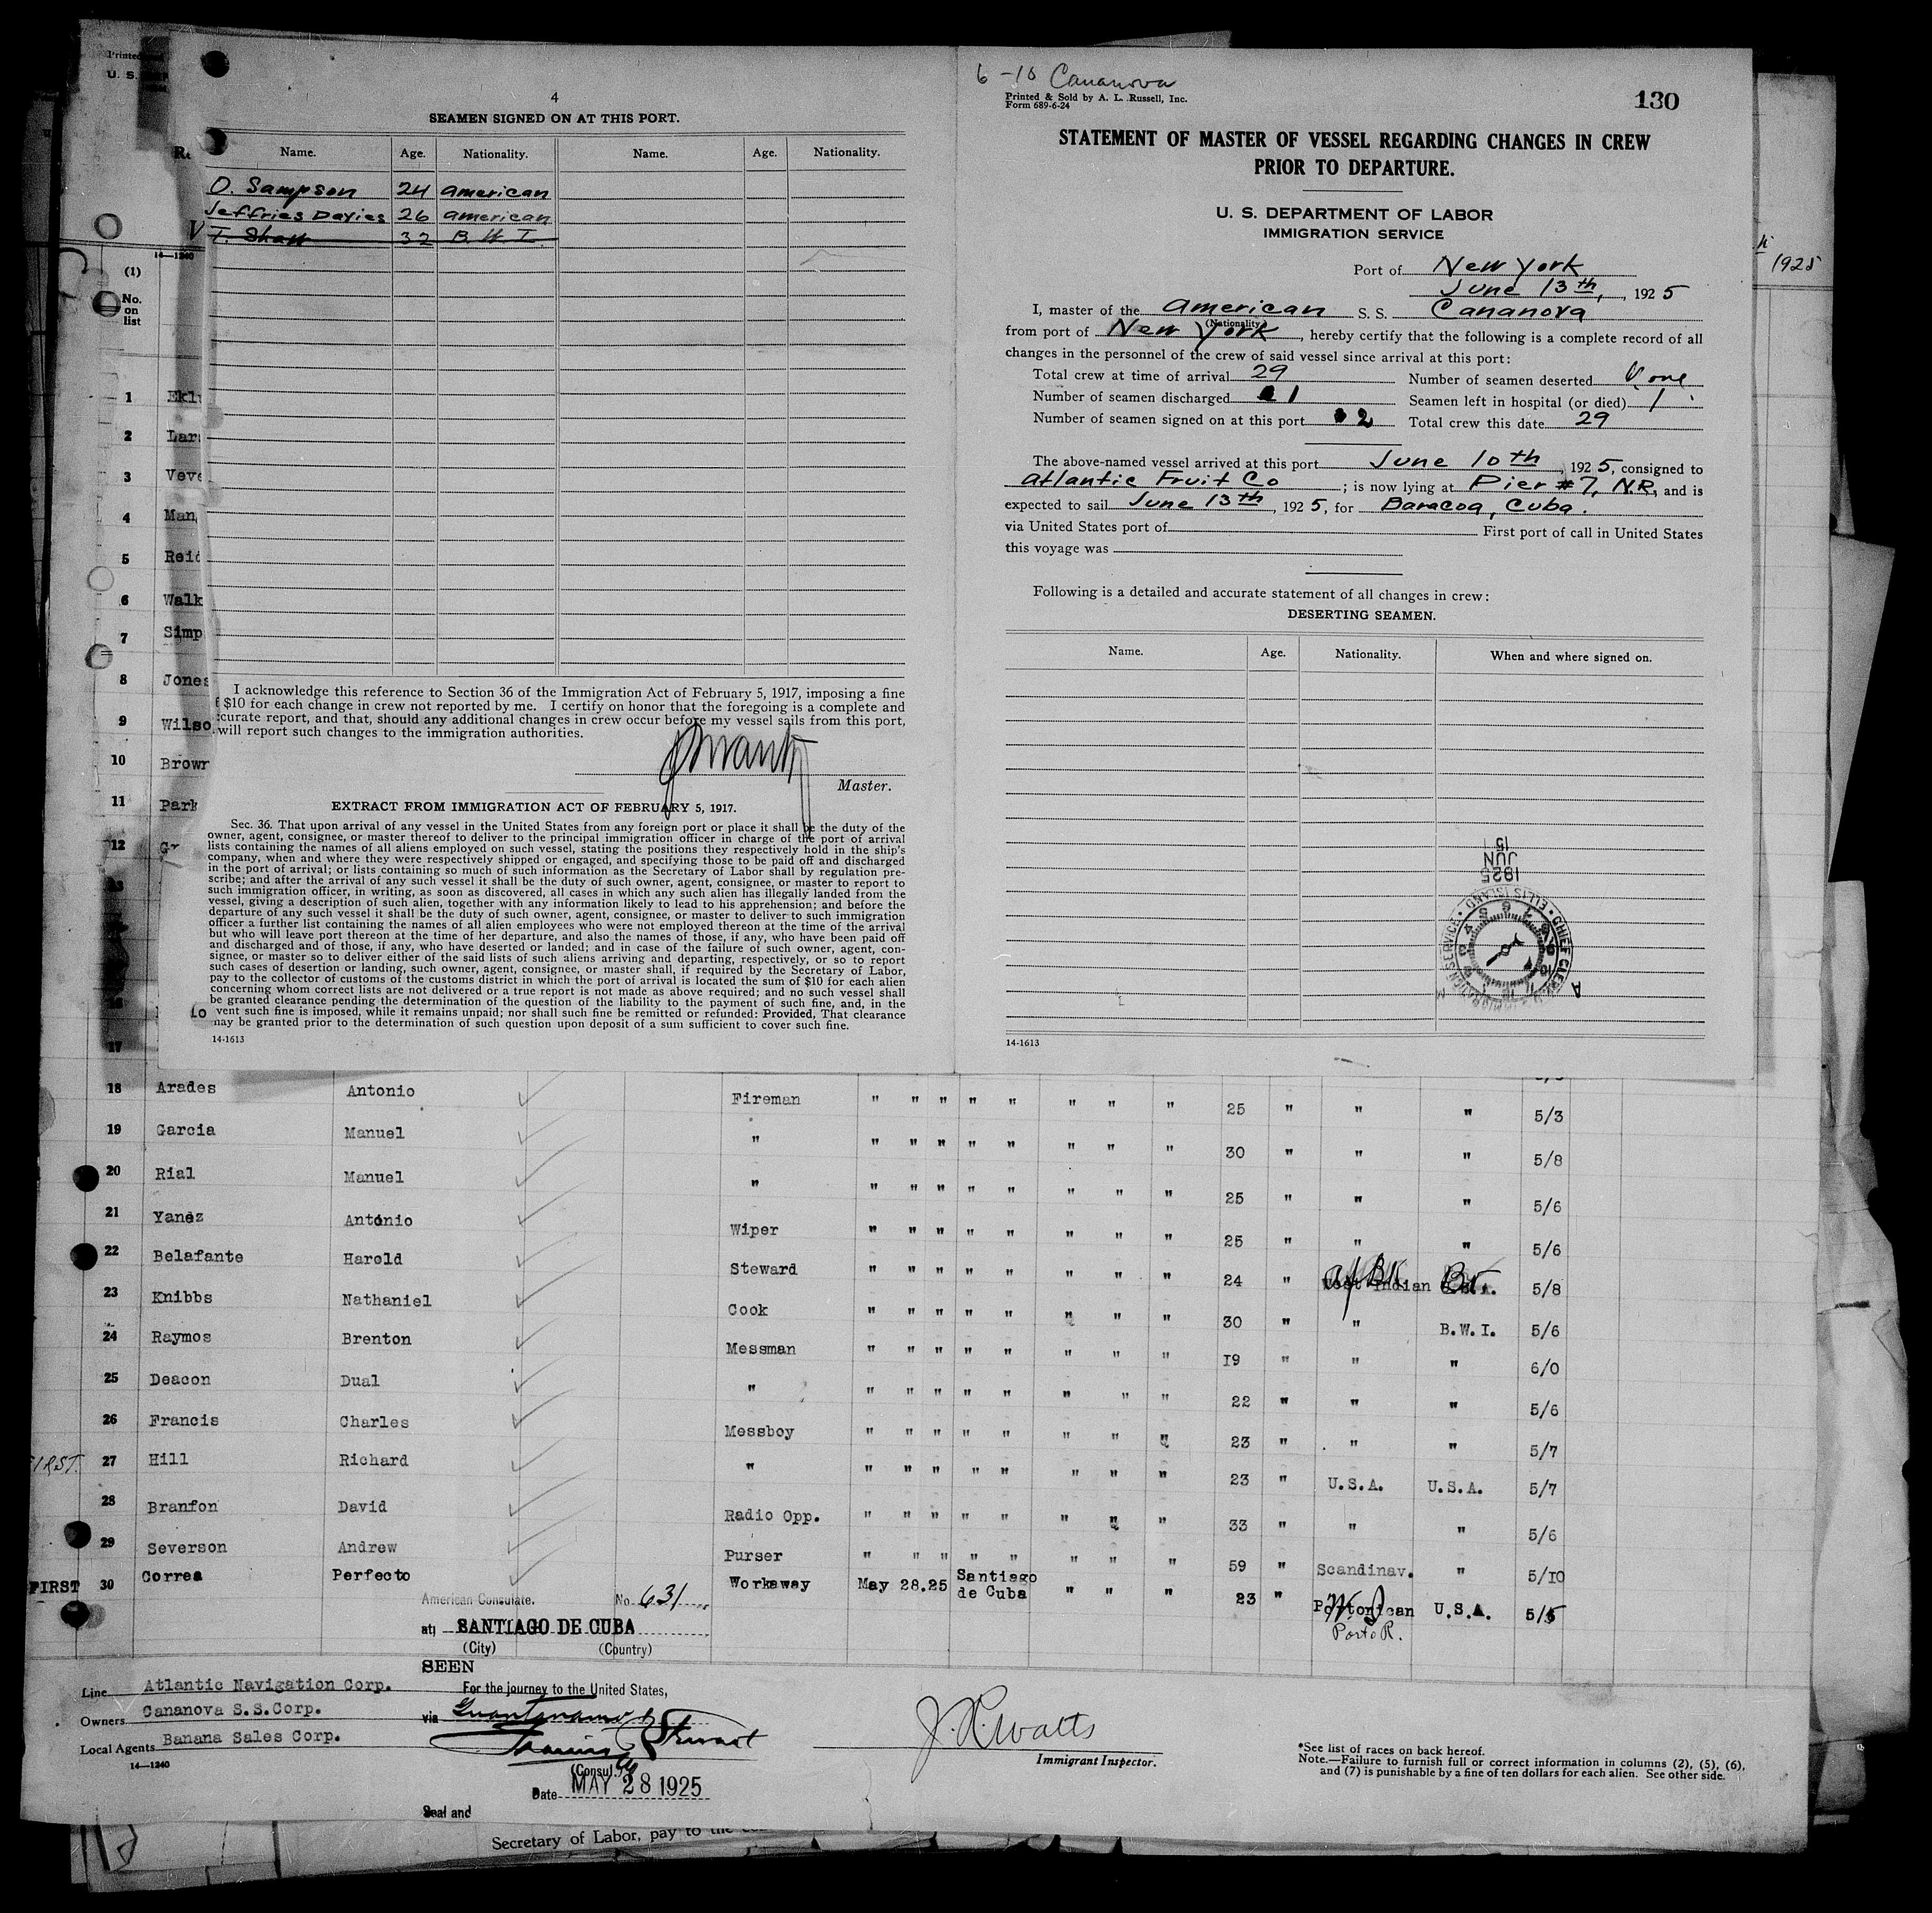 Printed
U. S.
4
SEAMEN SIGNED ON AT THIS PORT.
Name. Age. Nationality. Name. Age. Nationality.
D. Sampson 24 american
Jeffries Davies 26 american
T. Shaw 32 B. W. I.
14—1240
(1)
No. on list
1 Ekl
2 Lar
3 Veve
4 Man
5 Reid
6 Walk
7 Simp
8 Jones
9 Wilso
10 Brown
11 Park
12 Gr
16
17
I acknowledge this reference to Section 36 of the Immigration Act of February 5, 1917, imposing a fine
f $10 for each change in crew not reported by me. I certify on honor that the foregoing is a complete and
curate report, and that, should any additional changes in crew occur before my vessel sails from this port,
will report such changes to the immigration authorities.
Master.
EXTRACT FROM IMMIGRATION ACT OF FEBRUARY 5, 1917.
Sec. 36. That upon arrival of any vessel in the United States from any foreign port or place it shall be the duty of the
owner, agent, consignee, or master thereof to deliver to the principal immigration officer in charge of the port of arrival
lists containing the names of all aliens employed on such vessel, stating the positions they respectively hold in the ship's
company, when and where they were respectively shipped or engaged, and specifying those to be paid off and discharged
in the port of arrival; or lists containing so much of such information as the Secretary of Labor shall by regulation pre-
scribe; and after the arrival of any such vessel it shall be the duty of such owner, agent, consignee, or master to report to
such immigration officer, in writing, as soon as discovered, all cases in which any such alien has illegally landed from the
vessel, giving a description of such alien, together with any information likely to lead to his apprehension; and before the
departure of any such vessel it shall be the duty of such owner, agent, consignee, or master to deliver to such immigration
officer a further list containing the names of all alien employees who were not employed thereon at the time of the arrival
but who will leave port thereon at the time of her departure, and also the names of those, if any, who have been paid off
and discharged and of those, if any, who have deserted or landed; and in case of the failure of such owner, agent, con-
signee, or master so to deliver either of the said lists of such aliens arriving and departing, respectively, or so to report
such cases of desertion or landing, such owner, agent, consignee, or master shall, if required by the Secretary of Labor,
pay to the collector of customs of the customs district in which the port of arrival is located the sum of $10 for each alien
concerning whom correct lists are not delivered or a true report is not made as above required; and no such vessel shall
be granted clearance pending the determination of the question of the liability to the payment of such fine, and, in the
vent such fine is imposed, while it remains unpaid; nor shall such fine be remitted or refunded: Provided, That clearance
may be granted prior to the determination of such question upon deposit of a sum sufficient to cover such fine.
14-1613
6-10 Cananova
Printed & Sold by A. L. Russell, Inc.
Form 689-6-24
130
STATEMENT OF MASTER OF VESSEL REGARDING CHANGES IN CREW
PRIOR TO DEPARTURE.
U. S. DEPARTMENT OF LABOR
IMMIGRATION SERVICE
Port of New York
June 13th, , 1925
I, master of the american S. S. Cananova
(Nationality)
from port of New York, hereby certify that the following is a complete record of all
changes in the personnel of the crew of said vessel since arrival at this port:
Total crew at time of arrival 29 Number of seamen deserted None
Number of seamen discharged 1 Seamen left in hospital (or died) 1
Number of seamen signed on at this port 2 Total crew this date 29
The above-named vessel arrived at this port June 10th, 1925, consigned to
Atlantic Fruit Co ; is now lying at Pier #7, N.R, and is
expected to sail June 13th, 1925, for Baracoa, Cuba.
via United States port of First port of call in United States
this voyage was
Following is a detailed and accurate statement of all changes in crew:
DESERTING SEAMEN.
Name. Age. Nationality. When and where signed on.
1925 JUN 15
CHIEF CLERK ELLIS ISLAND IMMIGRATION SERVICE
14-1613
1925
18 Arades Antonio Fireman " " " " " " " " 25 " " " 5/3
19 Garcia Manuel " " " " " " " " " 30 " " " 5/8
20 Rial Manuel " " " " " " " " " 25 " " " 5/6
21 Yanez Antonio Wiper " " " " " " " " 25 " " " 5/6
22 Belafante Harold Steward " " " " " " " " 24 " West Indian Br. 5/8
23 Knibbs Nathaniel Cook " " " " " " " " 30 " " B.W.I. 5/6
24 Raymos Brenton Messman " " " " " " " " 19 " " " 6/0
25 Deacon Dual " " " " " " " " " 22 " " " 5/6
26 Francis Charles Messboy " " " " " " " " 23 " " " 5/7
FIRST 27 Hill Richard " " " " " " " " " 23 " U.S.A. U.S.A. 5/7
28 Branfon David Radio Opp. " " " " " " " " 33 " " " 5/6
29 Severson Andrew Purser " " " " " " " " 59 " Scandinav. " 5/10
FIRST 30 Correa Perfecto Workaway May 28.25 Santiago de Cuba " " " 23 " Portorican U.S.A. 5/5
Porto R.
American Consulate. No. 631
at SANTIAGO DE CUBA
(City) (Country)
SEEN
For the journey to the United States,
via Guantanamo
Stewart
(Consul.)
Date MAY 28 1925
Seal and
Line Atlantic Navigation Corp.
Owners Cananova S.S.Corp.
Local Agents Banana Sales Corp.
14—1240
J. R. Watts
Immigrant Inspector.
*See list of races on back hereof.
Note.—Failure to furnish full or correct information in columns (2), (5), (6),
and (7) is punishable by a fine of ten dollars for each alien. See other side.
Secretary of Labor, pay to the